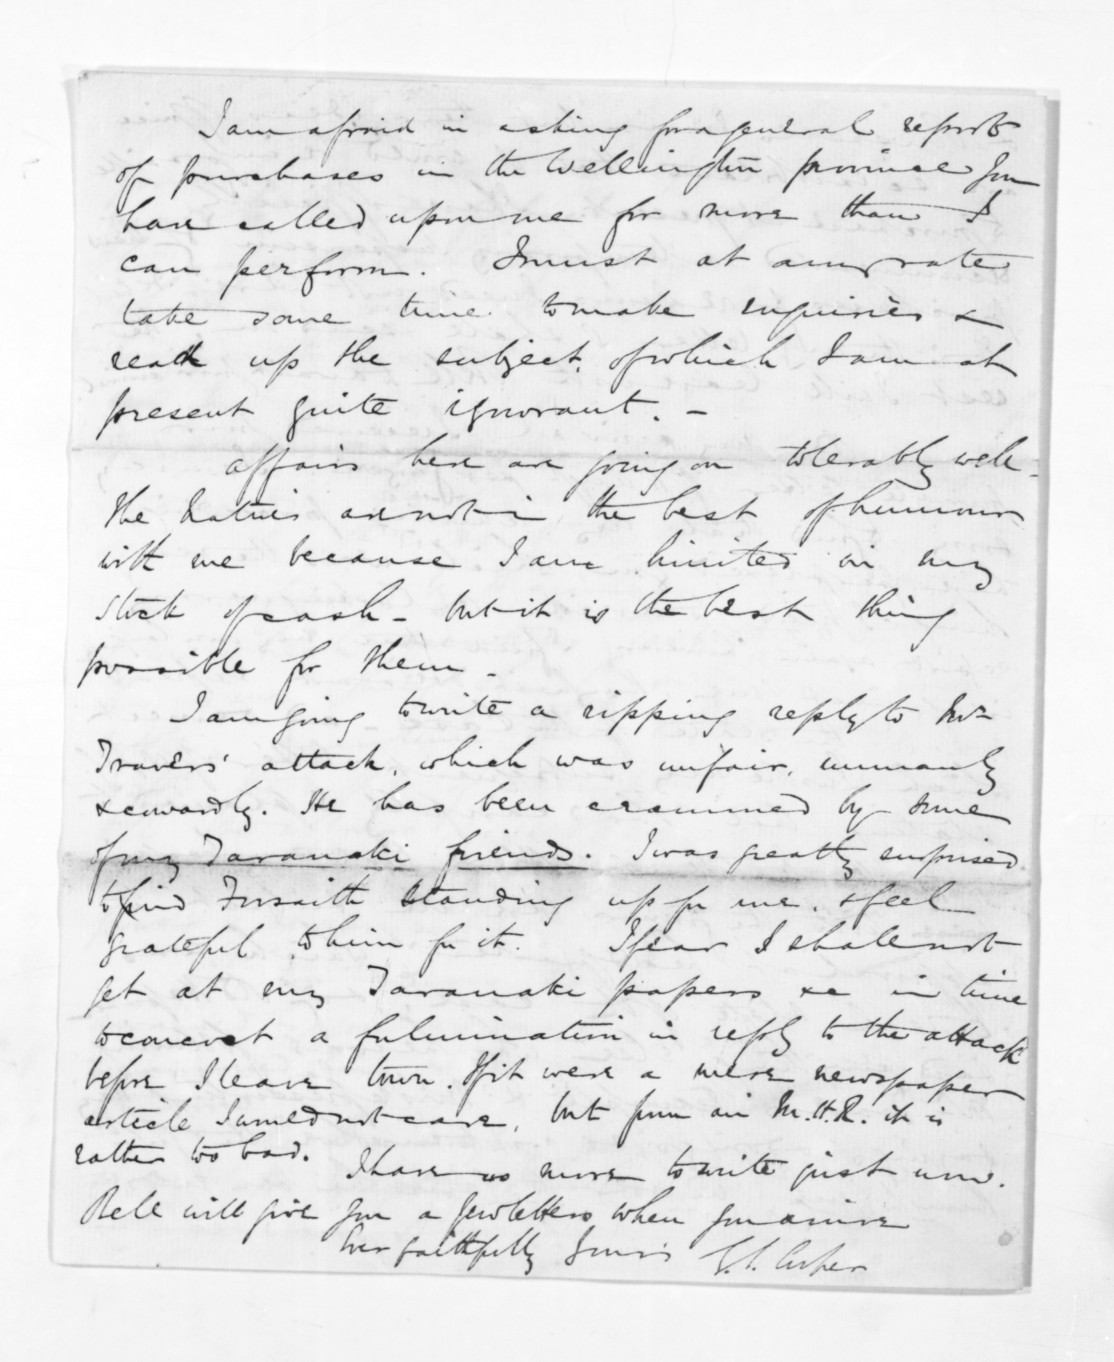 I am afraid in asking for a general report
of purchases in the Wellington province you
have called upon me for more than I
can perform. I must at any rate
take some time to make enquiries &
read up the subject, of which I am at
present quite ignorant. —
affairs here are going on tolerably well -
the Natives are not in the best of humour
with me because I am limited in my
stock of cash - but it is the best thing
possible for them -
I am going to write a ripping reply to Mr
Travers' attack, which was unfair, unmanly
& cowardly. He has been crammed by some
of my Taranaki friends. I was greatly surprised
to find Forsaith standing up for me, & feel
grateful to him for it. I fear I shall not
get at my Taranaki papers &c in time
to concoct a fulmination in reply to the attack
before I leave town. If it were a mere newspaper
article I would not care, but from an M.H.R. it is
rather too bad. I have no more to write just now.
Bell will give you a few letters when you arrive
Ever faithfully yours G.S. Cooper